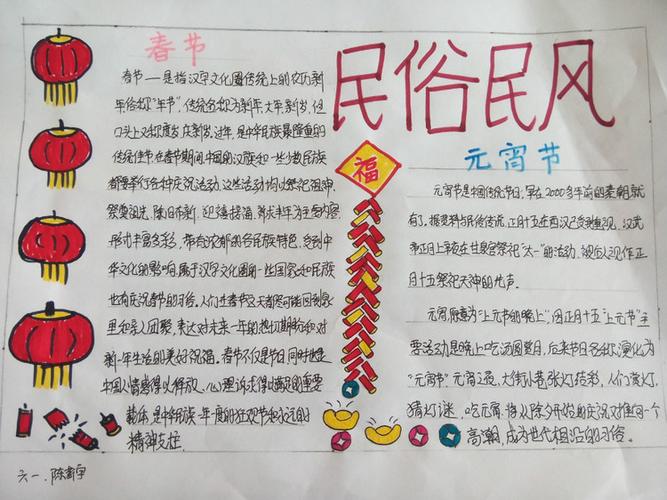 春节
春节——是指汉字文化圈传统上的农历新
年俗称"年节",传统名称为新年、大年、新岁,但
口头上又称度岁、庆新岁、过年,是中华民族最隆重的
传统佳节在春节期间中国的汉族和一些少数民族
都要举行各种庆祝活动。这些活动均以祭祀祖神、
祭奠祖先、除旧布新、迎禧接福、祈求丰年为主要内容,
形式丰富多彩,带有浓郁的各民族特色。受到中
华文化的影响,属于汉字文化圈的一些国家和民族
也有庆祝春节的习俗。人们在春节这天都尽可能回到家
里和亲人团聚,表达对未来一年的热切期盼和对
新一年生活的美好祝福。春节不仅是节日,同时也是
中国人情感得以释放、心理诉求得以满足的重要
载体,是中华民族一年一度的狂欢节和永远的
精神支柱.
民俗民风
元宵节
福
元宵节是中国传统节日,早在2000多年前的秦朝就
有了。据资料与民俗传说,正月十五在西汉已受到重视,汉武
帝正月上辛夜在甘泉宫祭祀"太一"的活动,被后人视作正
月十五祭祀天神的先声。
元宵原意为"上元节的晚上",因正月十五"上元节"主
要活动是晚上吃汤圆赏月,后来节日名称演化为
"元宵节"元宵之夜,大街小巷张灯结彩,人们赏灯,
猜灯谜,吃元宵,将从除夕开始的庆祝又推向一个
高潮,成为世代相沿的习俗。
六一、陈